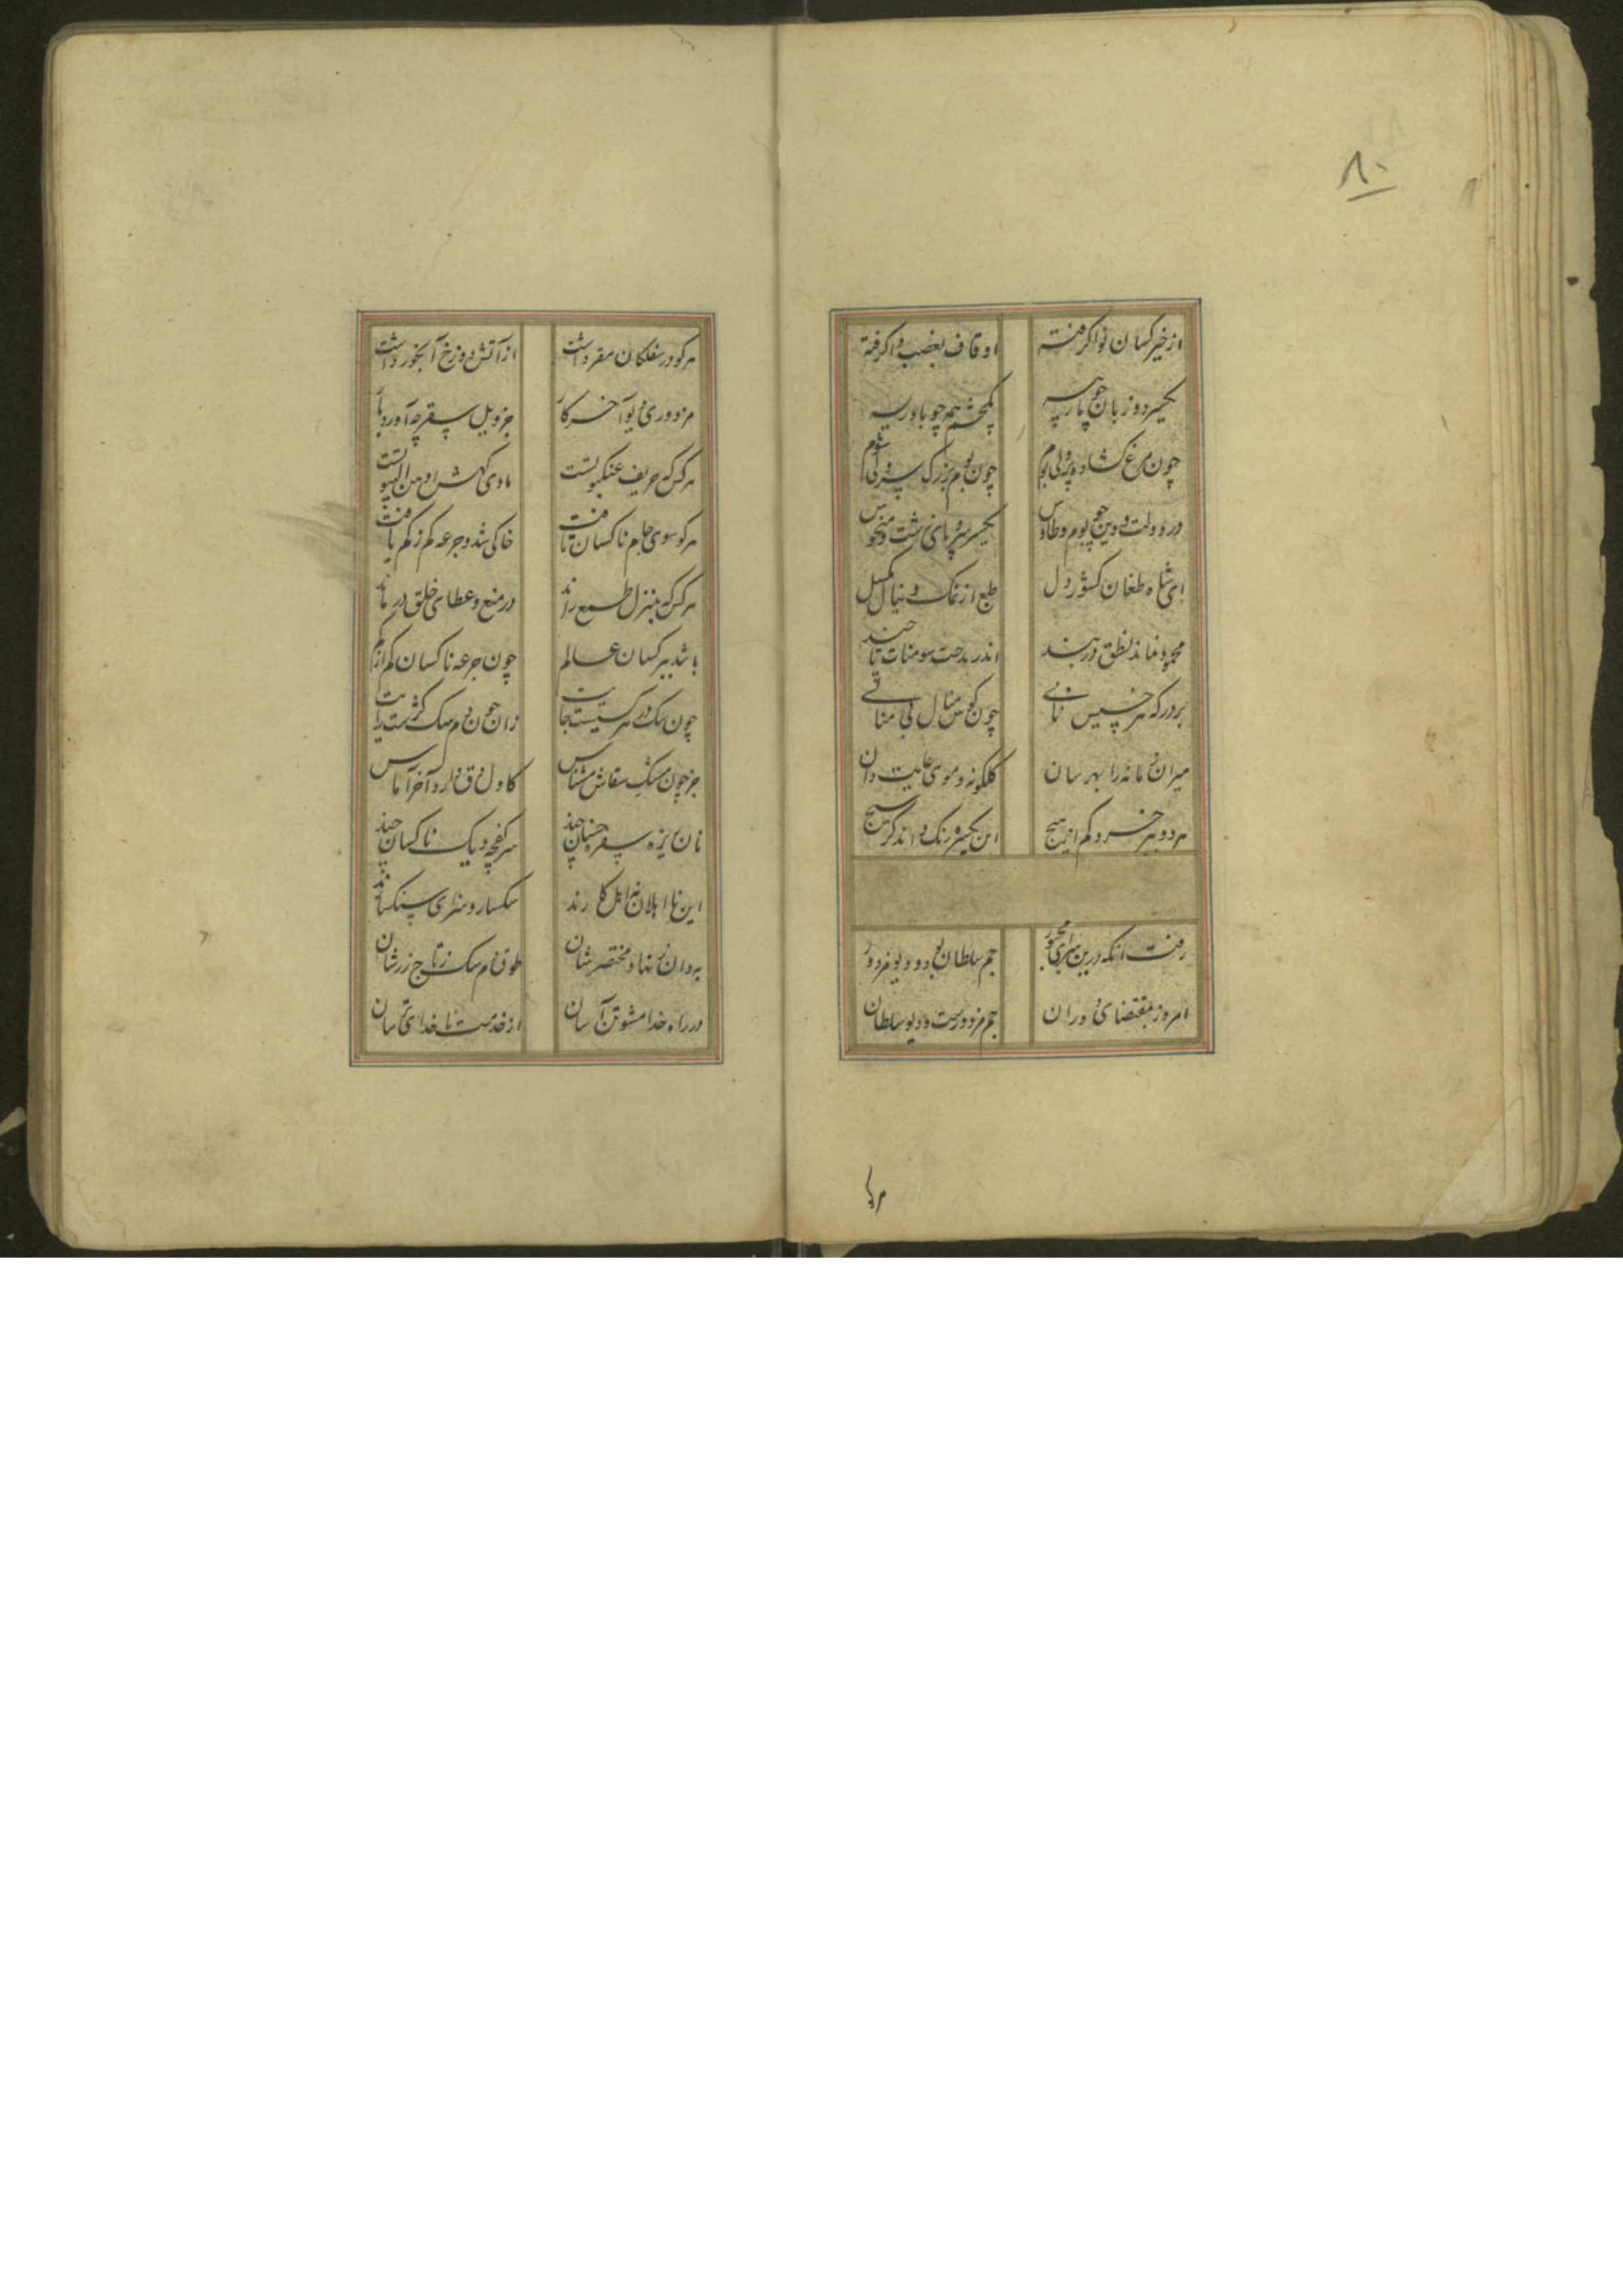 ۸۰
از خیر کسان نوا گرفته اوقاف بغصب وا گرفته
یکسر دو زبان چو پارسه یکچشم همه چو باورسه
چون مرغ گشاده پر ولی بوم چون بوم بزرگ سر ولی شوم
در دولت و دین چو بوم و طاوس یکسر سر و پای زشت و منحوس
ای شاه طغان کشور دل طبع از نمک و ینال بکسل
محمود نماند نطق در بند اندر بدحت سومنات تا چند
بر درگه هر خسیس نانی چون کوس منال بی منانی
میران مانه را بهر سان کلکونه و موی عاریت دان
هر دو بر خرد کم از هیچ این یکسره رنگ و آن دگر هیچ
رفت آنکه درین سرای جم سلطان بود و دیو مزدور
امروز بمقتضای دوران جم مزدورست و دیو سلطان
هر کو
هر کو در سفلکان مقر داشت از آتش دوزخ آبخور داشت
مزدوری دیو آخر کار جز ویل سقر چه آورد بار
هر کس که حریف عنکبوتست ماوی گهش اوهن البیوتست
هر کو سوی جام ناکسان تافت خاکی شد و جرعه کم ز کم یافت
هر کس که بمنزل طمع راند در منع و عطای خلق در ماند
باشد بر کسان عالم چون جرعه ناکسان کم از کم
چون سگ در هر کسیست جایت زان چون دم سگ کژست رایت
جز چون مشک سقاش مشناس کاول دق دارد آخر آماس
نان ریزه سفره خسان چند سر کفچه دیک ناکسان چند
این نااهلان نه اهل کارند سگسار و سزای سنگسارند
به دان ز نهاد مختصرشان طوق دم سگ ز تاج زرشان
در راه خدا مشو تن آسان از خدمت ناخدای ترسان